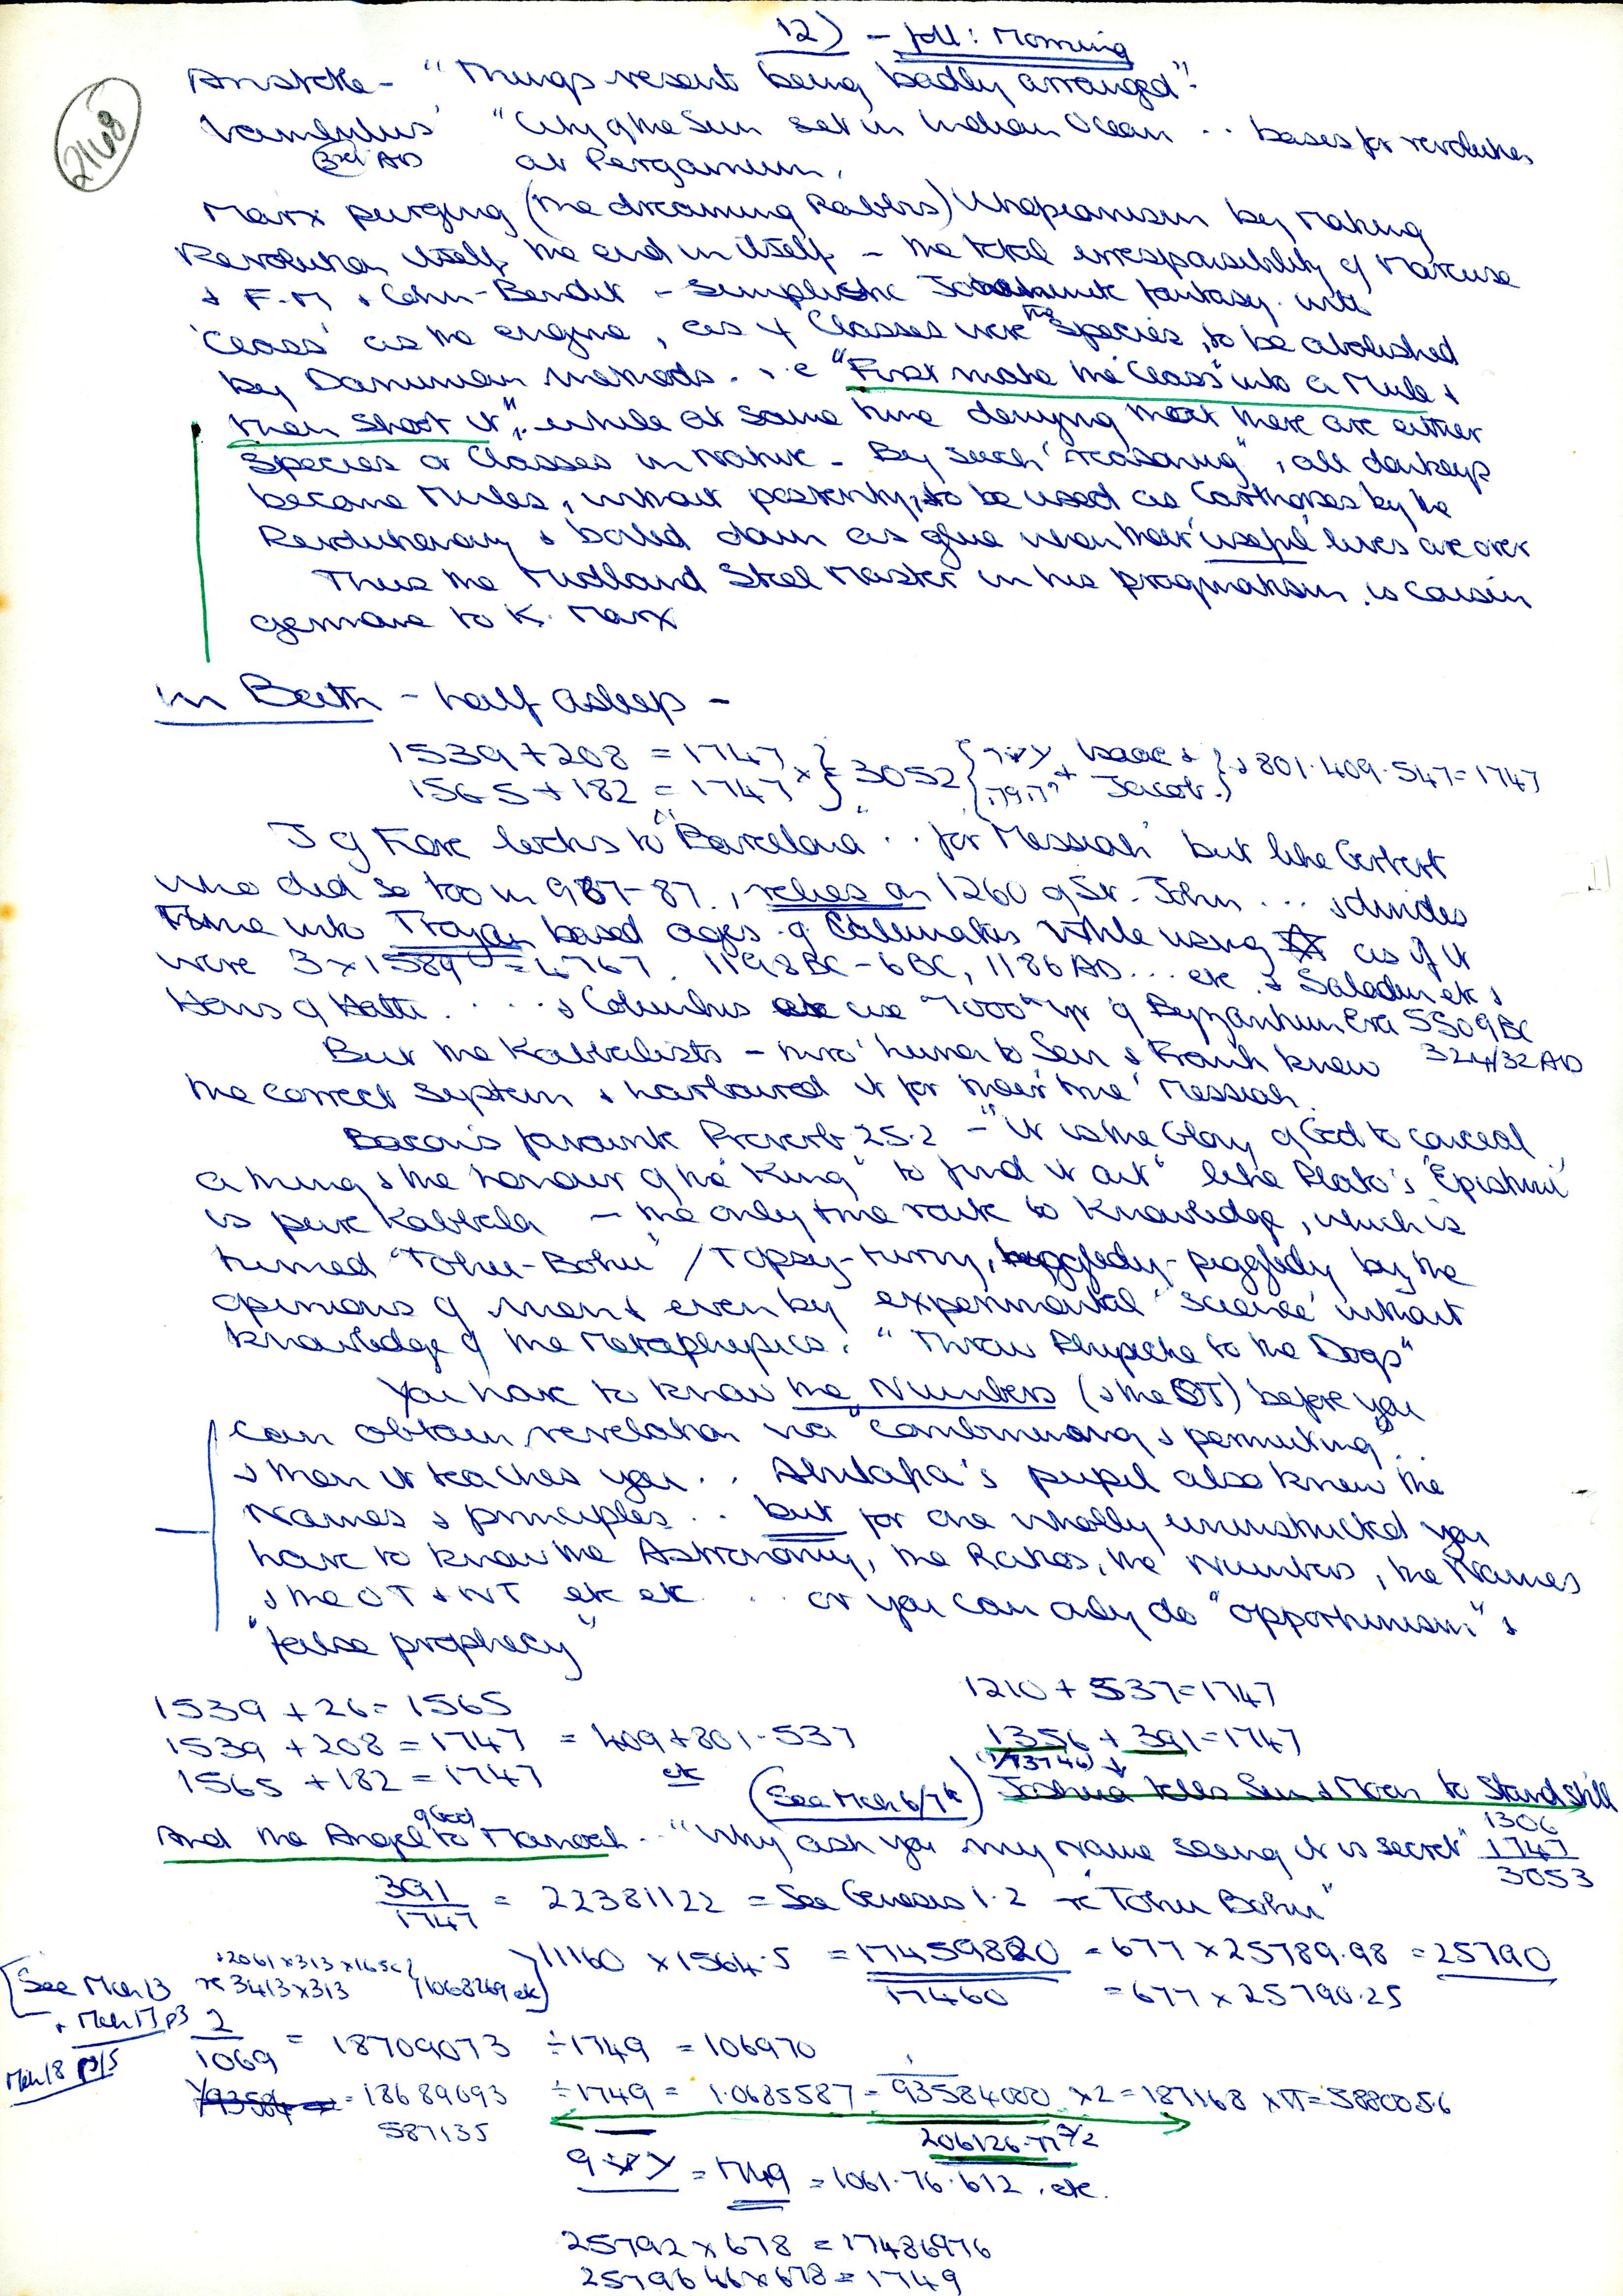 12) - foll: Morning
2168
Aristotle - "Things resent being badly arranged".
Iambulus' "City of the Sun set in Indian Ocean .. bases for revolution
3rd AD at Pergamum.
Marx purging (the dreaming Rabbis) Utopianism by making
Revolution itself the end in itself - the total irresponsibility of Marcuse
& F.M & Cohn-Bendit - simplistic fantasy. with
'Class' as the engine, as if Classes were the Species, to be abolished
by Darwinian methods. i.e "First make the 'Class' into a Mule &
then shoot it", while at same time denying that there are either
Species or Classes in Nature - By such 'reasoning', all donkeys
become Mules, without posterity, to be used as Carthorses by the
Revolutionary & boiled down as glue when their 'useful' lives are over
Thus the Midland Steel Master in his pragmatism is cousin
germane to K. Marx
In Bath - half asleep -
1539 + 208 = 1747
1565 + 182 = 1747 × } = 3052 { + Isaac & Jacob. } & 801.409.547 = 1747
J G Fore looks to "Barcelona" .. for 'Messiah' but like Gerbert
who did so too in 967-87., relies on 1260 of St. John ... & divides
Time into Trojan based ages of while using ✡ as if it
were 3 × 1589 = 4767. 1198BC - 6BC, 1186 AD ... etc & Saladin etc &
Horns of Hattin .... & Columbus use "7000" yr of Byzantium Era 5509BC
But the Kabbalists - thro' Luria to Sevi & Frank knew 324/32 AD
the correct system & harboured it for their 'time' Messiah.
Bacon's favourite Proverb 25.2 - "it is the Glory of God to conceal
a thing & the honour of the "King" to find it out" like Plato's 'Epistime'
is pure Kabbala - the only true route to knowledge, which is
turned 'Tohu-Bohu' / Topsy-turvy, higgledy-piggledy by the
opinions of men & even by experimental 'science' without
knowledge of the Metaphysics. "Throw Physicke to the Dogs"
You have to know the Numbers (& the OT) before you
can obtain revelation via "combining & permuting" ..
& then it teaches you .. Abulafia's pupil also knew the
Names & principles .. but for one wholly uninstructed you
have to know the Astronomy, the Ratios, the Numbers, the Names
& the OT & NT etc etc ... or you can only do "opportunism" &
"false prophecy"
1539 + 26 = 1565 1210 + 537 = 1747
1539 + 208 = 1747 = 409 + 801.537 1356 + 391 = 1747
1565 + 182 = 1747 etc (See Mch 6/7th) Joshua tells Sun & Moon to Stand still
And the Angel of God to Manoah .. "Why ask you my name seeing it is secret" 1306
1747
3053
391/1747 = 22381122 = See Genesis 1.2 re "Tohu Bohu"
[See Mch 13 re 3413×313 + 2061×313×165 /1068269 etc] 11160 × 1564.5 = 17459820 = 677 × 25789.98 = 25790
+ Mch 17 p3 17460 = 677 × 25790.25
Mch 18 p15
2/1069 = 18709073 ÷ 1749 = 106970
= 18689693 ÷ 1749 = 1.0685587 = 93584000 × 2 = 187168 × π = 588005.6
587135 206126.77 π/2
= 1749 = 1061.76.612 . etc.
25792 × 678 = 17486976
2579646 × 678 = 1749